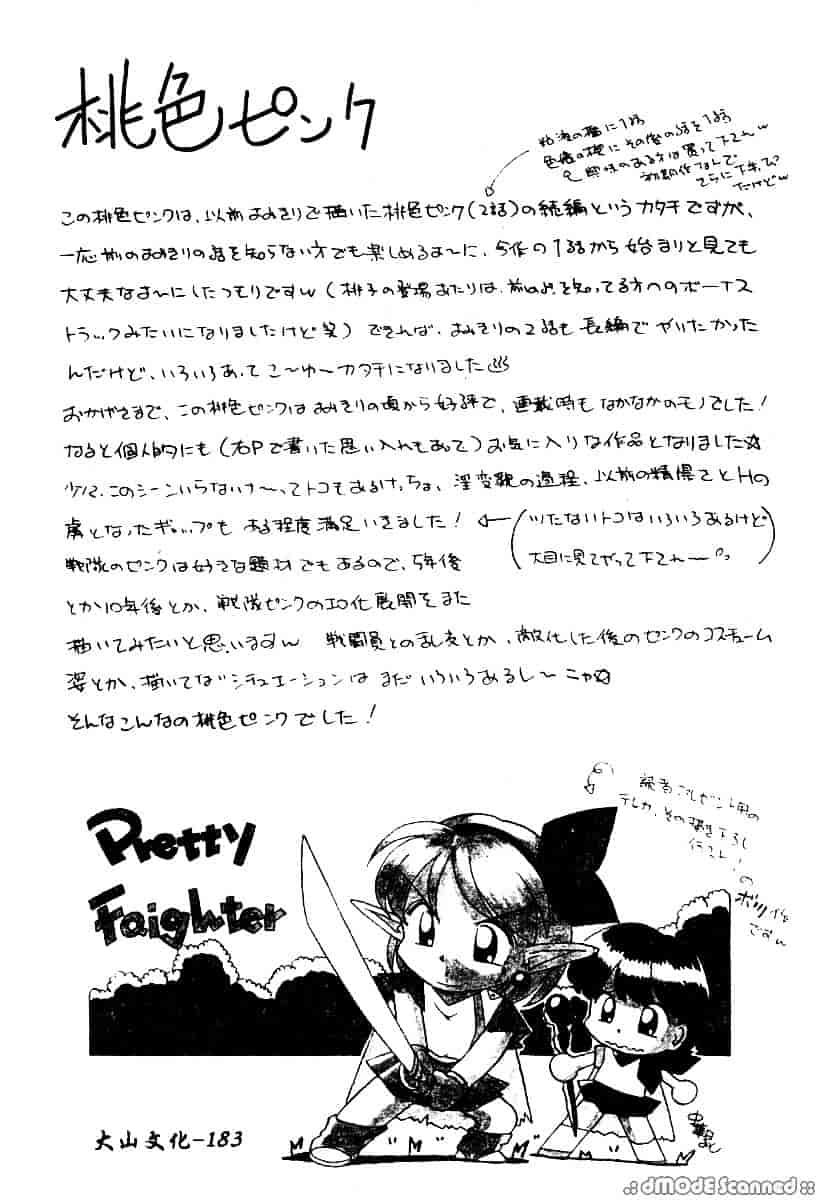 桃色ピンク
粘液の檻に1話
色痕の楔にその後の話を1話
興味のある方は買って下されw
初期作なんで
さらに下手っぴ
だけどw
この桃色ピンクは、以前よみきりで描いた桃色ピンク(2話)の続編というカタチですが、
一応前のよみきりの話を知らない方でも楽しめるよーに、5作の1話から始まりと見ても
大丈夫なよーにしたつもりですw(桃子の登場あたりは、前のを知ってる方へのボーナス
トラックみたいになりましたけど笑)できれば、よみきりの2話も長編でやりたかった
んだけど、いろいろあってこーゆーカタチになりました
おかげさまで、この桃色ピンクはよみきりの頃から好評で、連載時もなかなかのモノでした!
わりと個人的にも(右Pで書いた思い入れもあって)お気に入りな作品となりました☆
少々、このシーンいらないなーってトコもあるけっちょ、淫変貌の過程、以前の精悍さとHの
虜となったギャップもある程度満足いきました!
(ツたないトコはいろいろあるけど
大目に見てやって下されー)
戦隊のピンクは好きな題材でもあるので、5年後
とか10年後とか、戦隊ピンクのエロ化展開をまた
描いてみたいと思いますw 戦闘員との乱交とか、敵化した後のピンクのコスチューム
姿とか、描いてないシチュエーションはまだいろいろあるしーニャ☆
そんなこんなの桃色ピンクでした!
読者プレゼント用の
テレカ、その描き下ろし
イラスト!
の
ボツ作
ですw
Pretty
Faighter
大山文化-183
.::dMODE Scanned::.